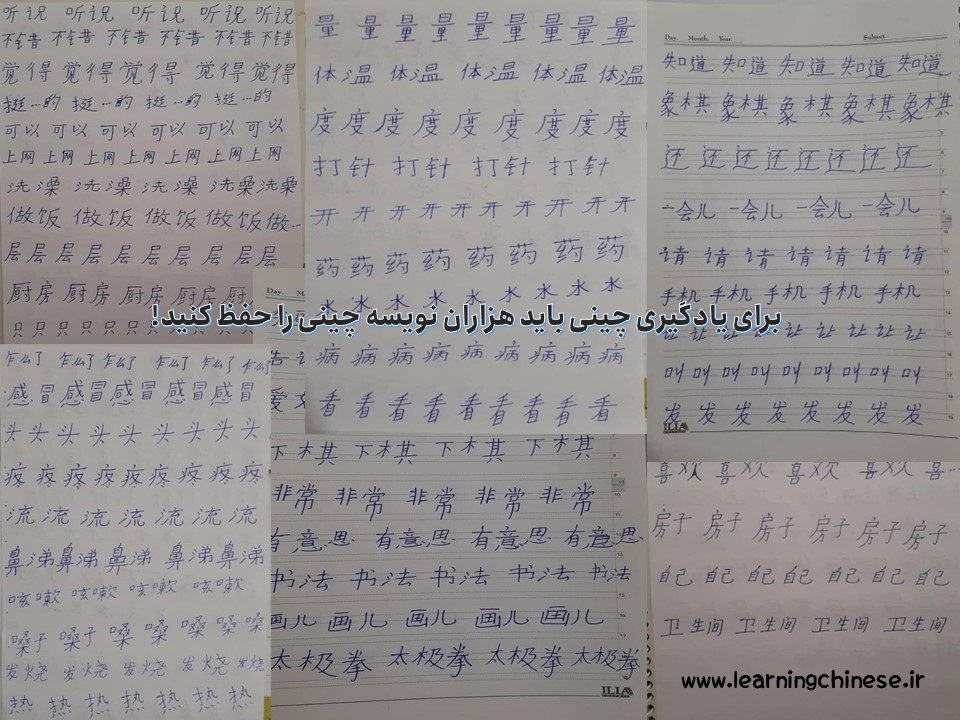 听说 听说 听说 听说 听说
不错 不错 不错 不错 不错 不错
觉得 觉得 觉得 觉得 觉得
挺…的 挺…的 挺…的 挺…的
可以 可以 可以 可以 可以 可以
上网 上网 上网 上网 上网 上网 上网
洗澡 洗澡 洗澡 洗澡 洗澡
做饭 做饭 做饭 做饭 做饭 做…
层 层 层 层 层 层 层 层 层
厨房 厨房 厨房 厨房 厨
只 只 只 只 只 只 只 只
量 量 量 量 量 量 量 量 量
体温 体温 体温 体温 体温
度 度 度 度 度 度 度 度 度
打针 打针 打针 打针
开 开 开 开 开 开 开 开 开
药 药 药 药 药 药 药 药
水 水 水 水 水 水 水 水
病 病 病 病 病 病 病 病 病
看 看 看 看 看 看 看 看 看
Day. Month. Year. Subject.
知道 知道 知道 知道 知道
象棋 象棋 象棋 象棋 象棋
还 还 还 还 还 还 还 还
一会儿 一会儿 一会儿 一会儿
请 请 请 请 请 请 请
手机 手机 手机 手机 手机
让 让 让 让 让 让 让
叫 叫 叫 叫 叫 叫 叫 叫 叫
发 发 发 发 发 发 发 发
ILIA
برای یادگیری چینی باید هزاران نویسه چینی را حفظ کنید!
怎么了 怎么了 怎么了 怎么了 怎么了 怎么了
感冒 感冒 感冒 感冒 感冒
头 头 头 头 头 头 头 头
疼 疼 疼 疼 疼 疼 疼 疼 疼
流 流 流 流 流 流 流
鼻涕 鼻涕 鼻涕 鼻涕 鼻涕
咳嗽 咳嗽 咳嗽 咳嗽
嗓子 嗓子 嗓 嗓 嗓 嗓 嗓
发烧 发烧 发烧 发烧 发烧
热 热 热 热 热 热
Day.
下棋 下棋 下棋 下棋
非常 非常 非常 非常 非常
有意思 有意思 有意思 有意思
书法 书法 书法 书法 书法
画儿 画儿 画儿 画儿 画儿
太极拳 太极拳 太极拳 太极拳
ILIA
喜欢 喜欢 喜欢 喜欢 喜…
房子 房子 房子 房子 房子 房子
自己 自己 自己 自己 自己 自己 自己
卫生间 卫生间 卫生间 卫生间
www.learningchinese.ir